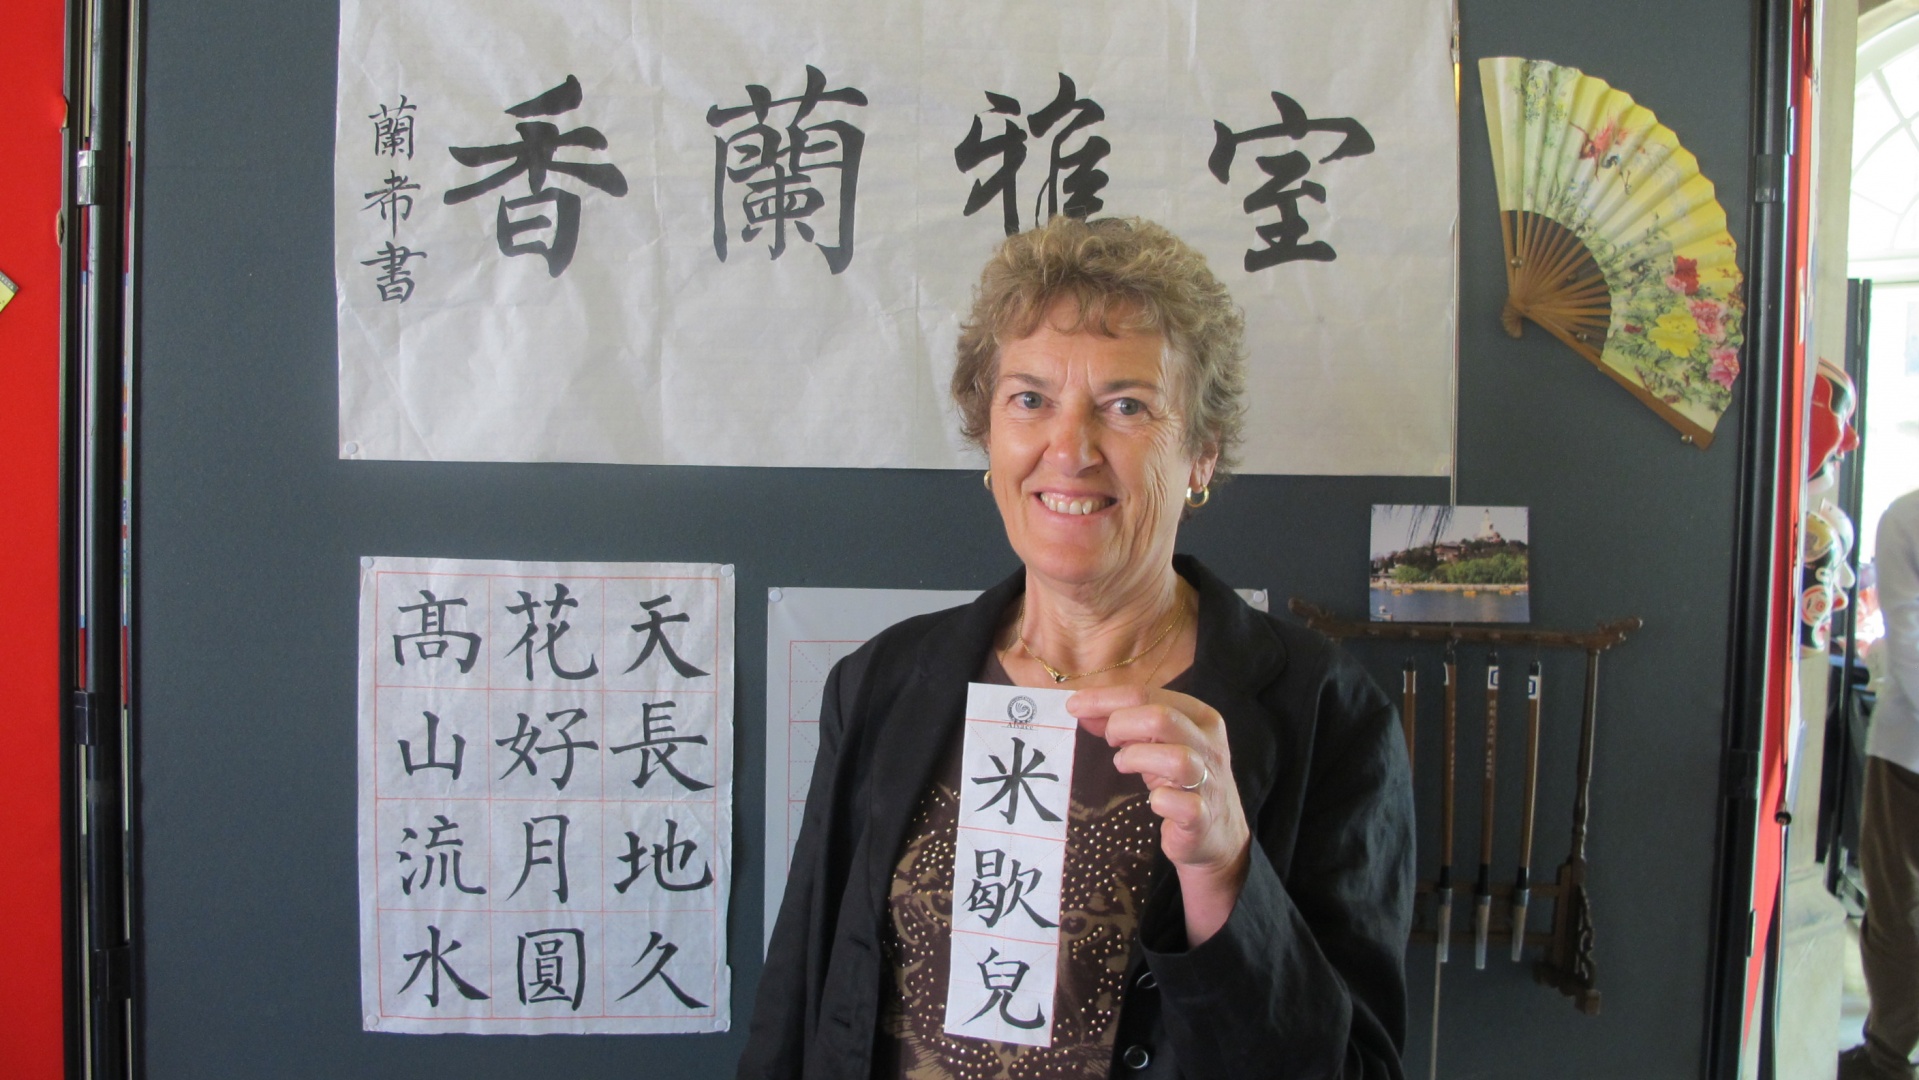 室雅蘭香
蘭希書
天長地久
花好月圓
高山流水
米歇兒